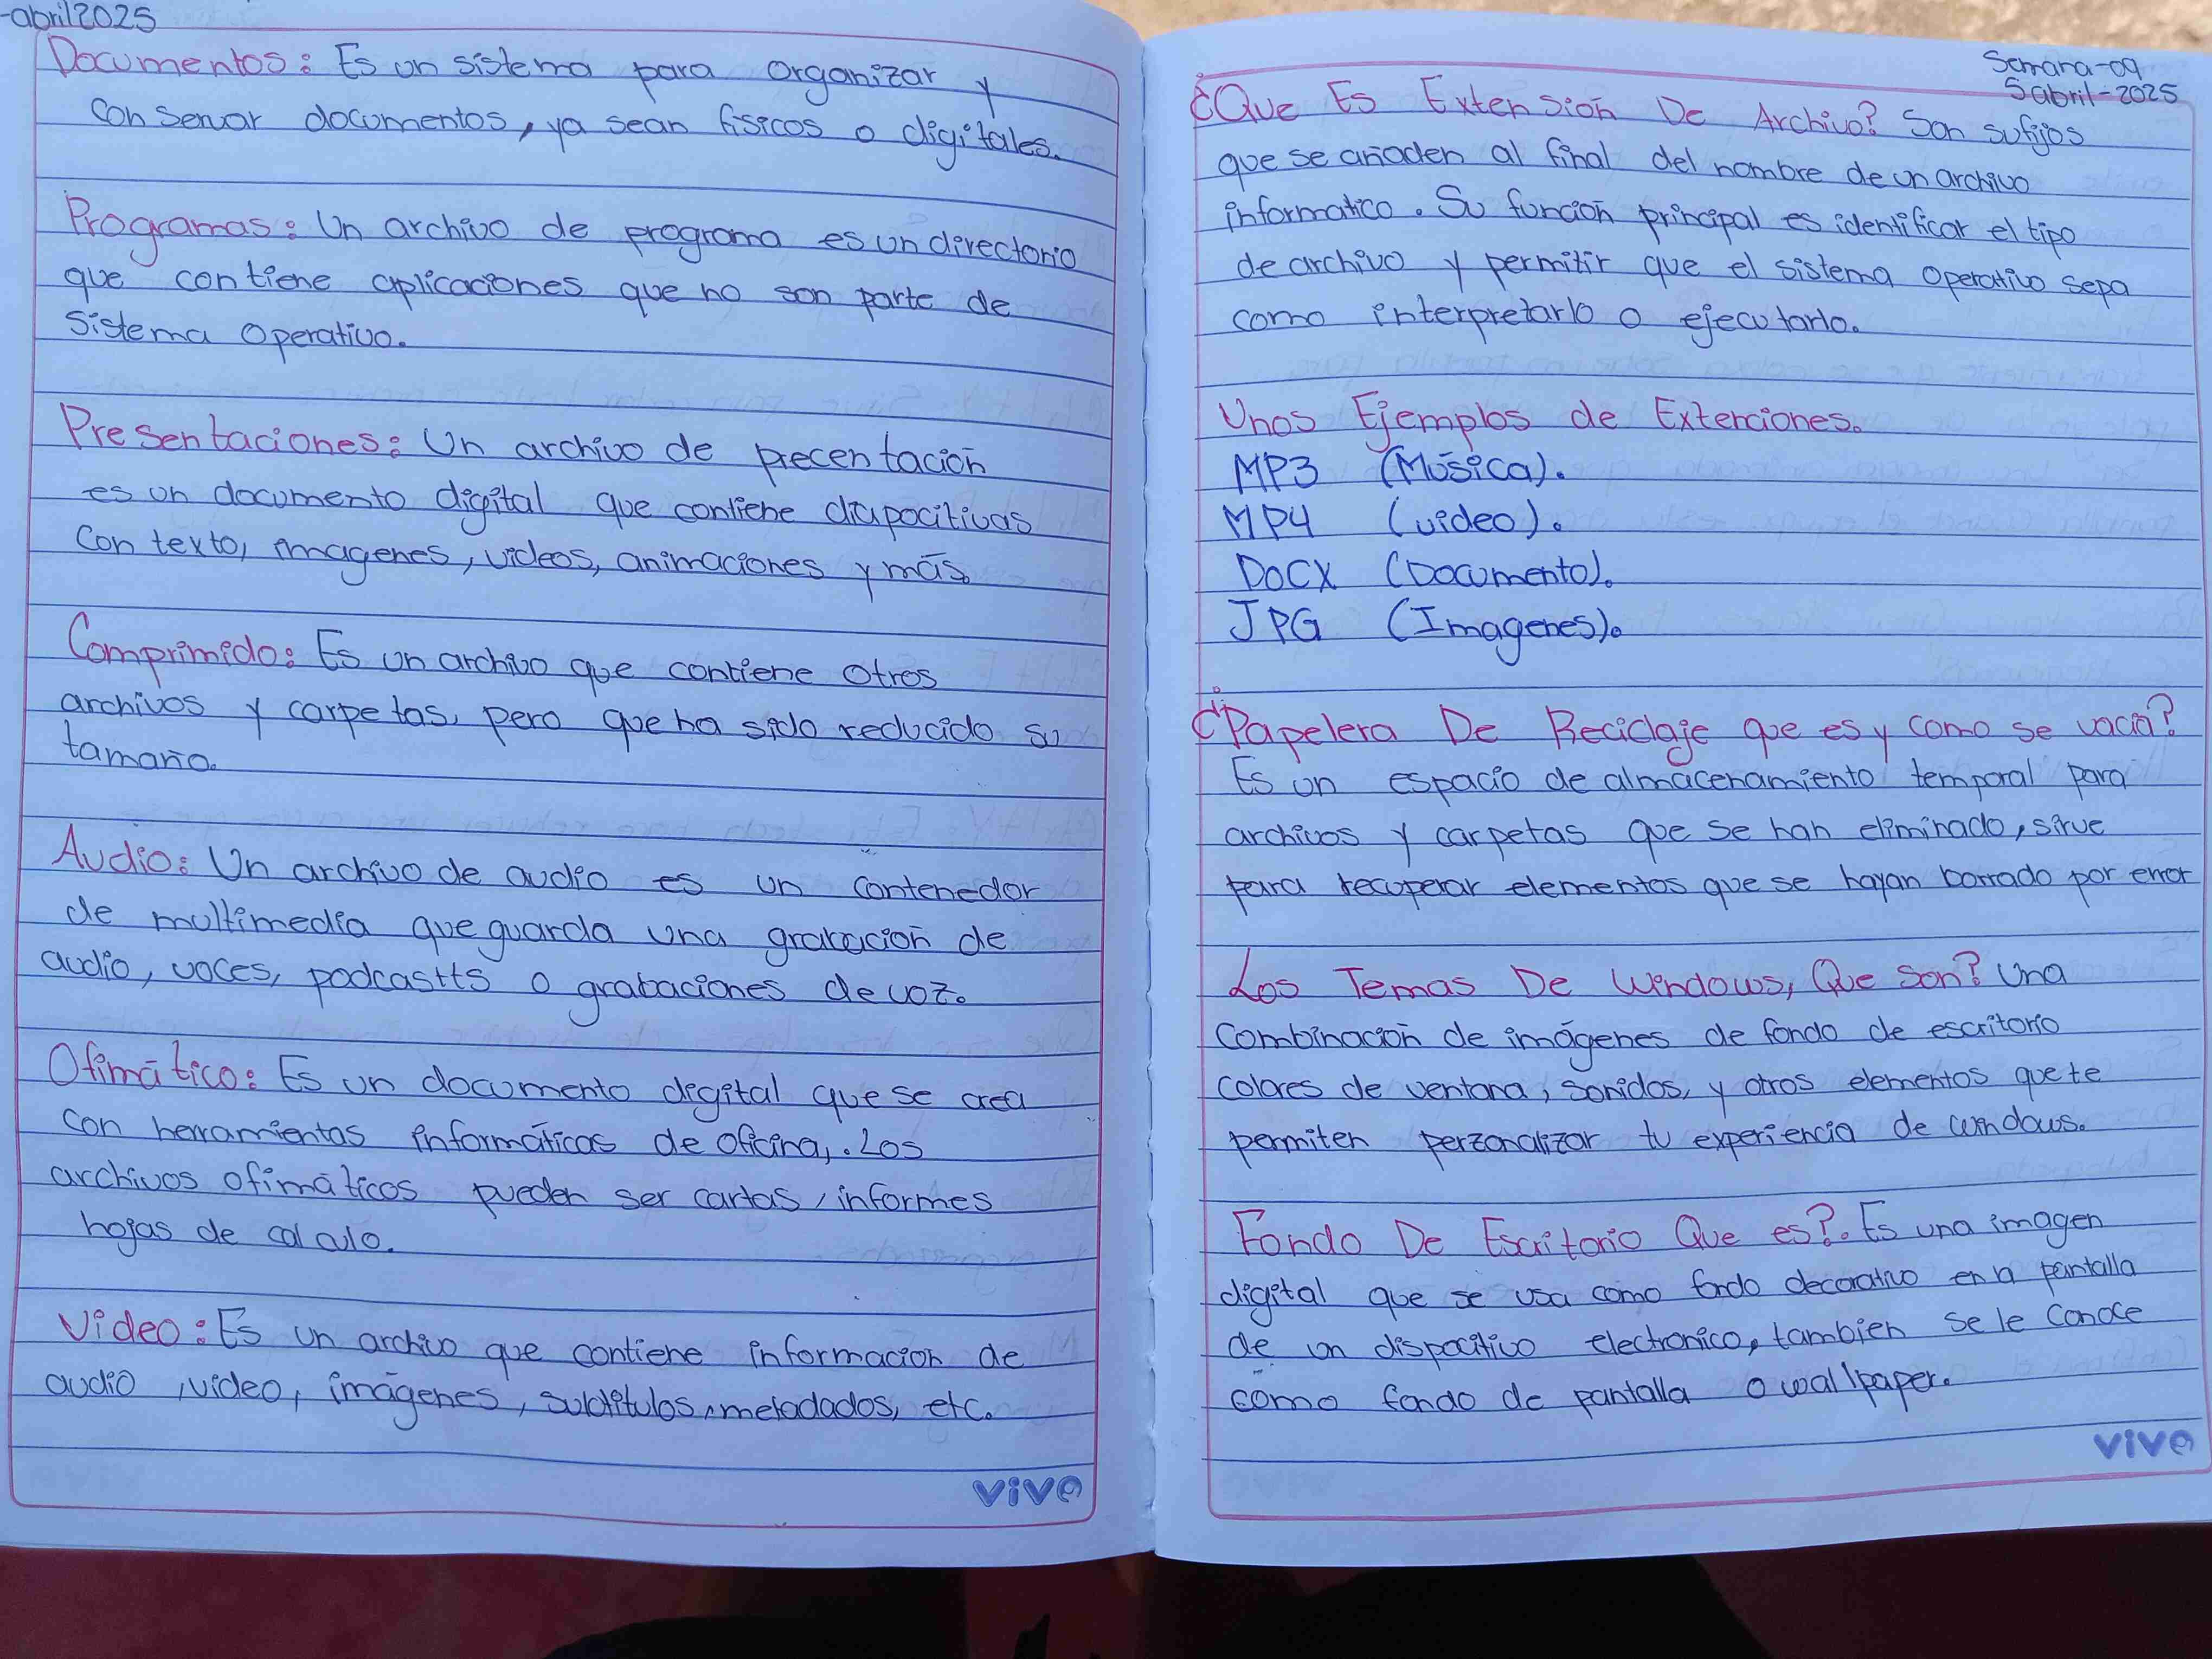 -abril 2025
Documentos: Es un sistema para organizar y
conservar documentos, ya sean físicos o digitales.
Programas: Un archivo de programa es un directorio
que contiene aplicaciones que no son parte de
sistema operativo.
Presentaciones: Un archivo de precentación
es un documento digital que contiene diapocitivas
con texto, imagenes, videos, animaciones y más.
Comprimido: Es un archivo que contiene otros
archivos y carpetas, pero que ha sido reducido su
tamaño.
Audio: Un archivo de audio es un contenedor
de multimedia que guarda una grabación de
audio, voces, podcastts o grabaciones de voz.
Ofimático: Es un documento digital que se crea
con herramientas informáticas de oficina,. Los
archivos ofimáticos pueden ser cartas, informes
hojas de calculo.
Video: Es un archivo que contiene información de
audio, video, imágenes, subtítulos, metadados, etc.
vive
Semana-09
5 abril-2025
¿Que Es Extensión De Archivo? Son sufijos
que se añaden al final del nombre de un archivo
informatico. Su función principal es identificar el tipo
de archivo y permitir que el sistema operativo sepa
como interpretarlo o ejecutarlo.
Unos Ejemplos de Extenciones.
MP3 (Música).
MP4 (video).
DOCX (Documento).
JPG (Imagenes).
¿Papelera De Reciclaje que es y como se vacía?
Es un espacio de almacenamiento temporal para
archivos y carpetas que se han eliminado, sirve
para recuperar elementos que se hayan borrado por error
Los Temas De Windows, Que Son? Una
combinación de imágenes de fondo de escritorio
colores de ventana, sonidos, y otros elementos que te
permiten perzonalizar tu experiencia de windows.
Fondo De Escritorio Que es?. Es una imagen
digital que se usa como fondo decorativo en la pantalla
de un dispocitivo electronico, tambien se le conoce
como fondo de pantalla o wallpaper.
vive